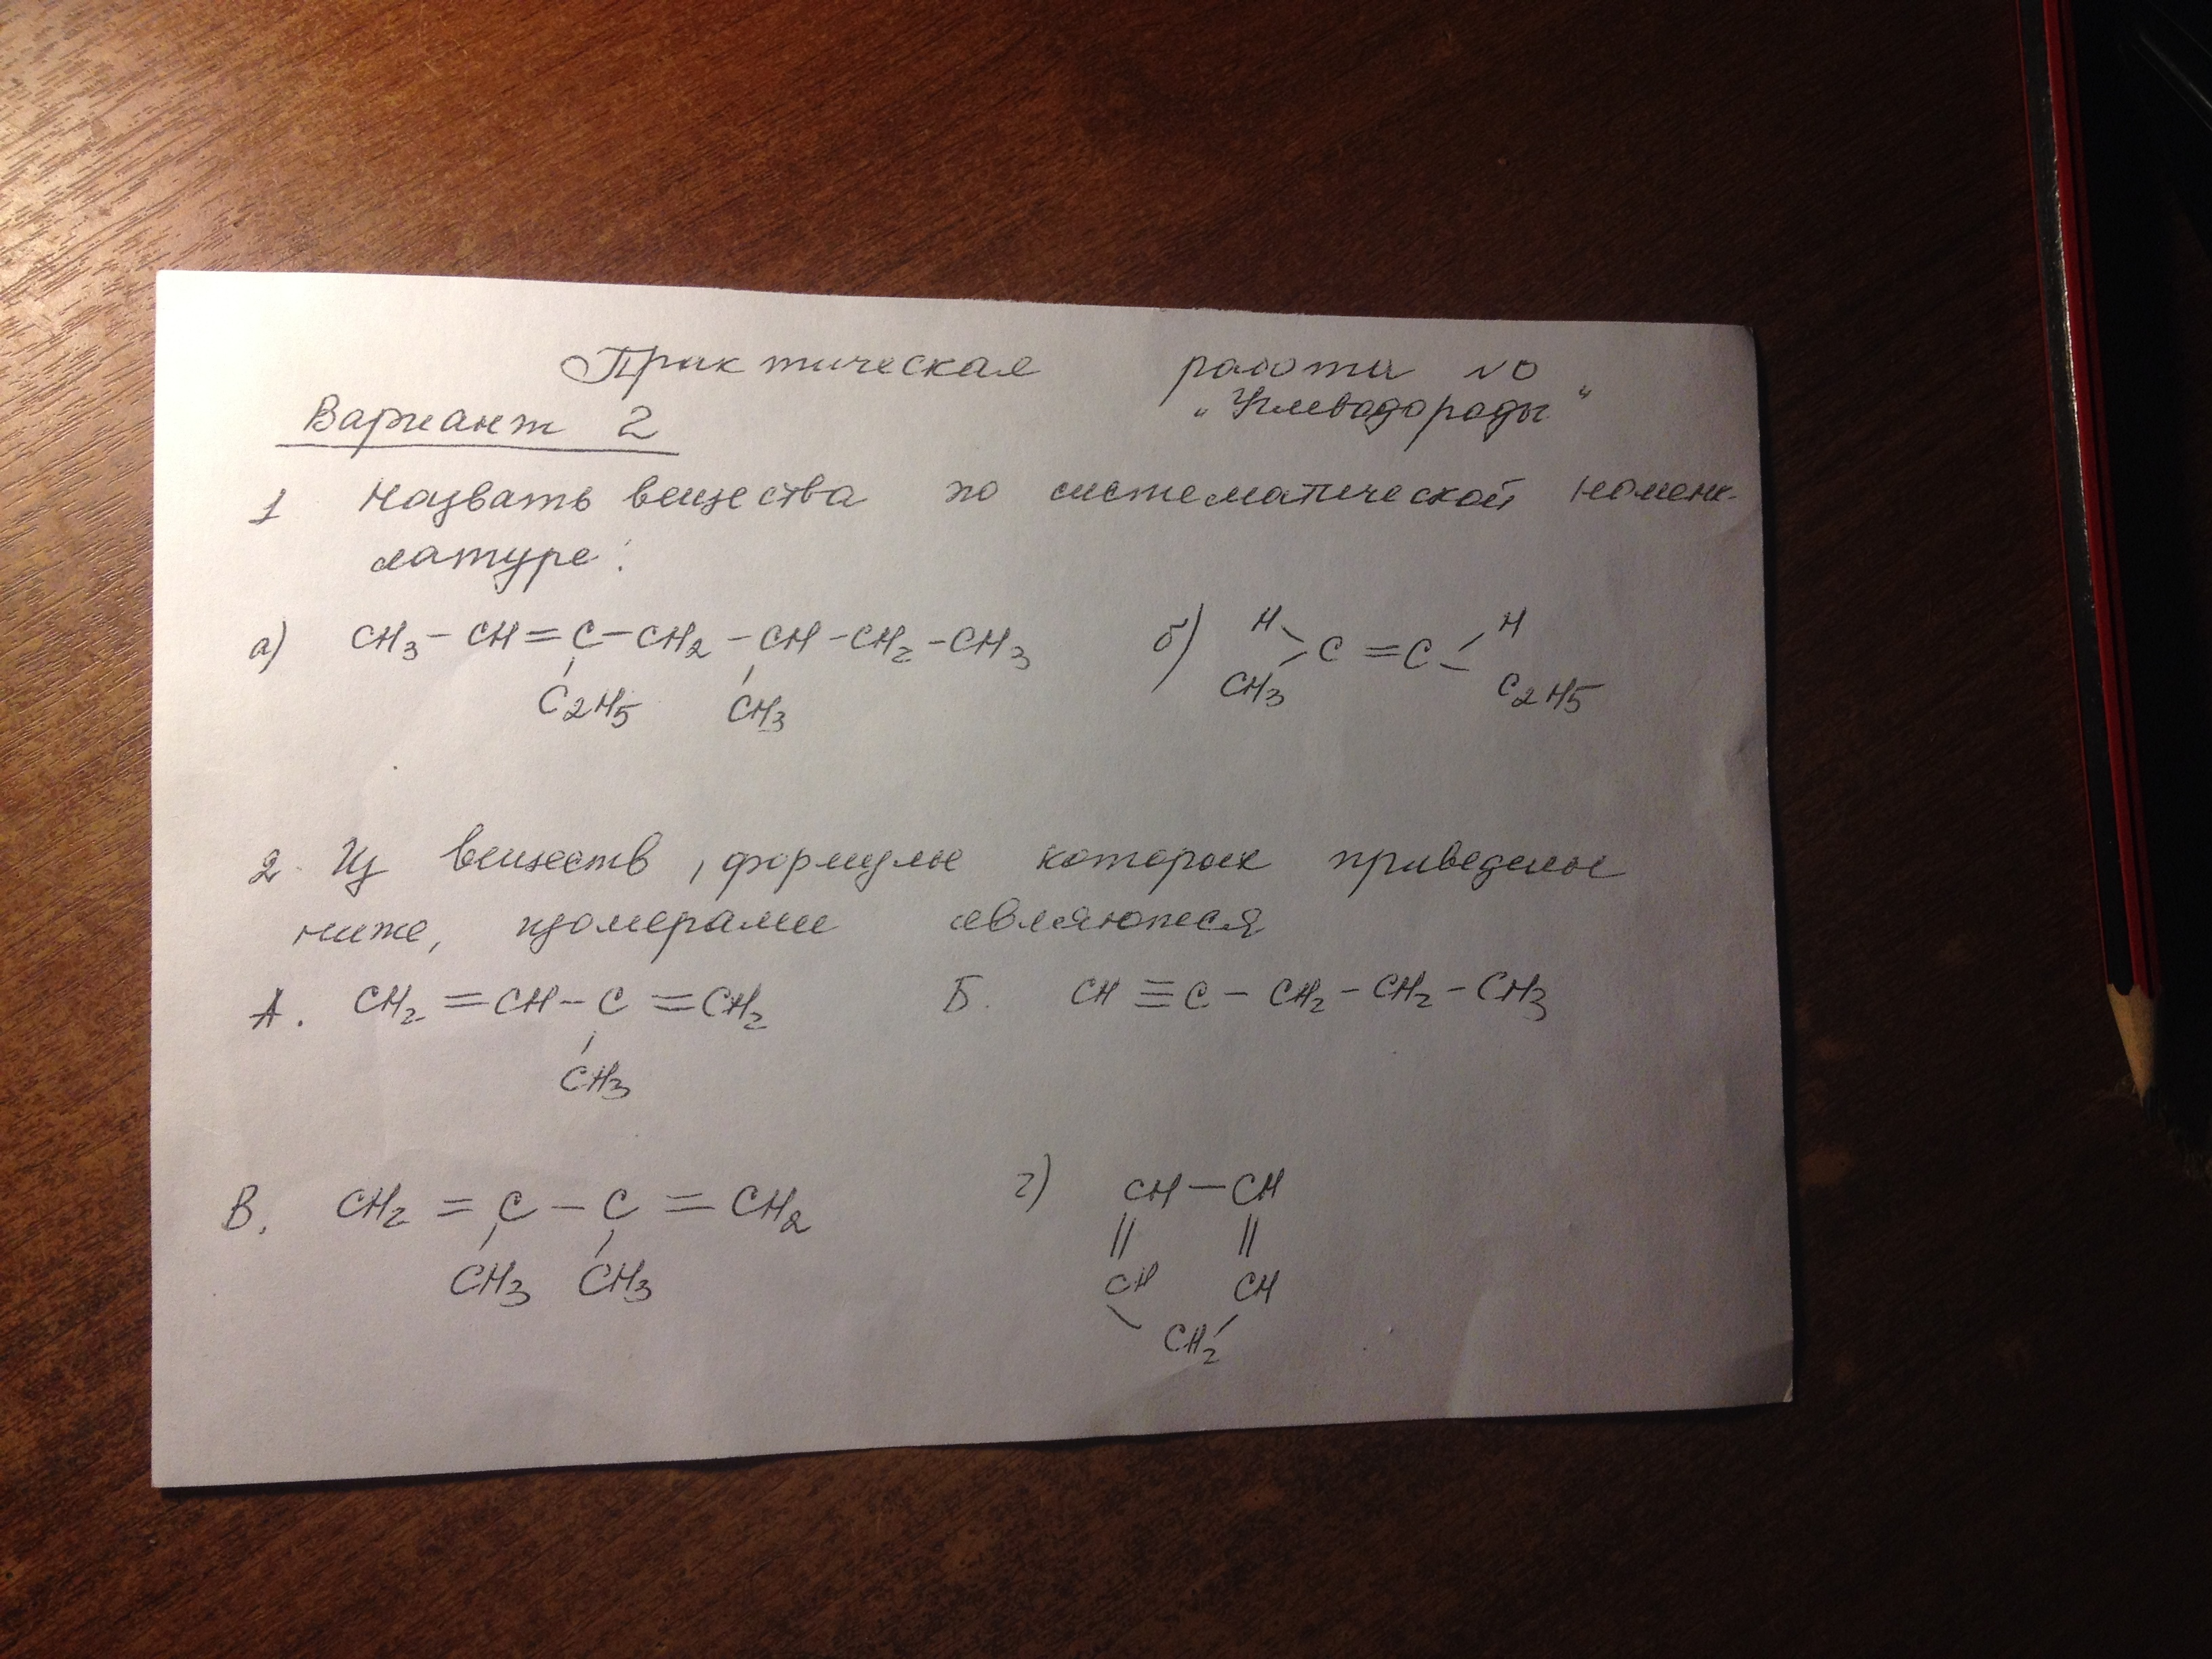 Практическая работа по
"Углеводороды"
Вариант 2
1 Назвать вещества по систематической номенк-
латуре:
а) CH3 – CH = C – CH2 – CH – CH2 – CH3
C2H5 CH3
б) H H
C = C
CH3 C2H5
2. Из веществ, формулы которых приведены
ниже, изомерами являются
А. CH2 = CH – C = CH2
CH3
Б. CH ≡ C – CH2 – CH2 – CH3
В. CH2 = C – C = CH2
CH3 CH3
г) CH – CH
|| ||
CH CH
CH2